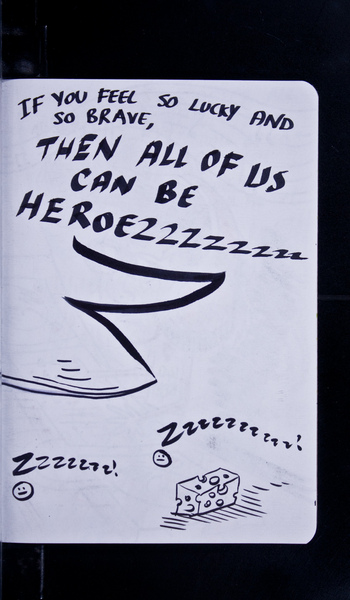 IF YOU FEEL SO LUCKY AND
SO BRAVE,
THEN ALL OF US
CAN BE
HEROEZZZZZZZZ
Zzzzzzzzzzz!
Zzzzzzz!